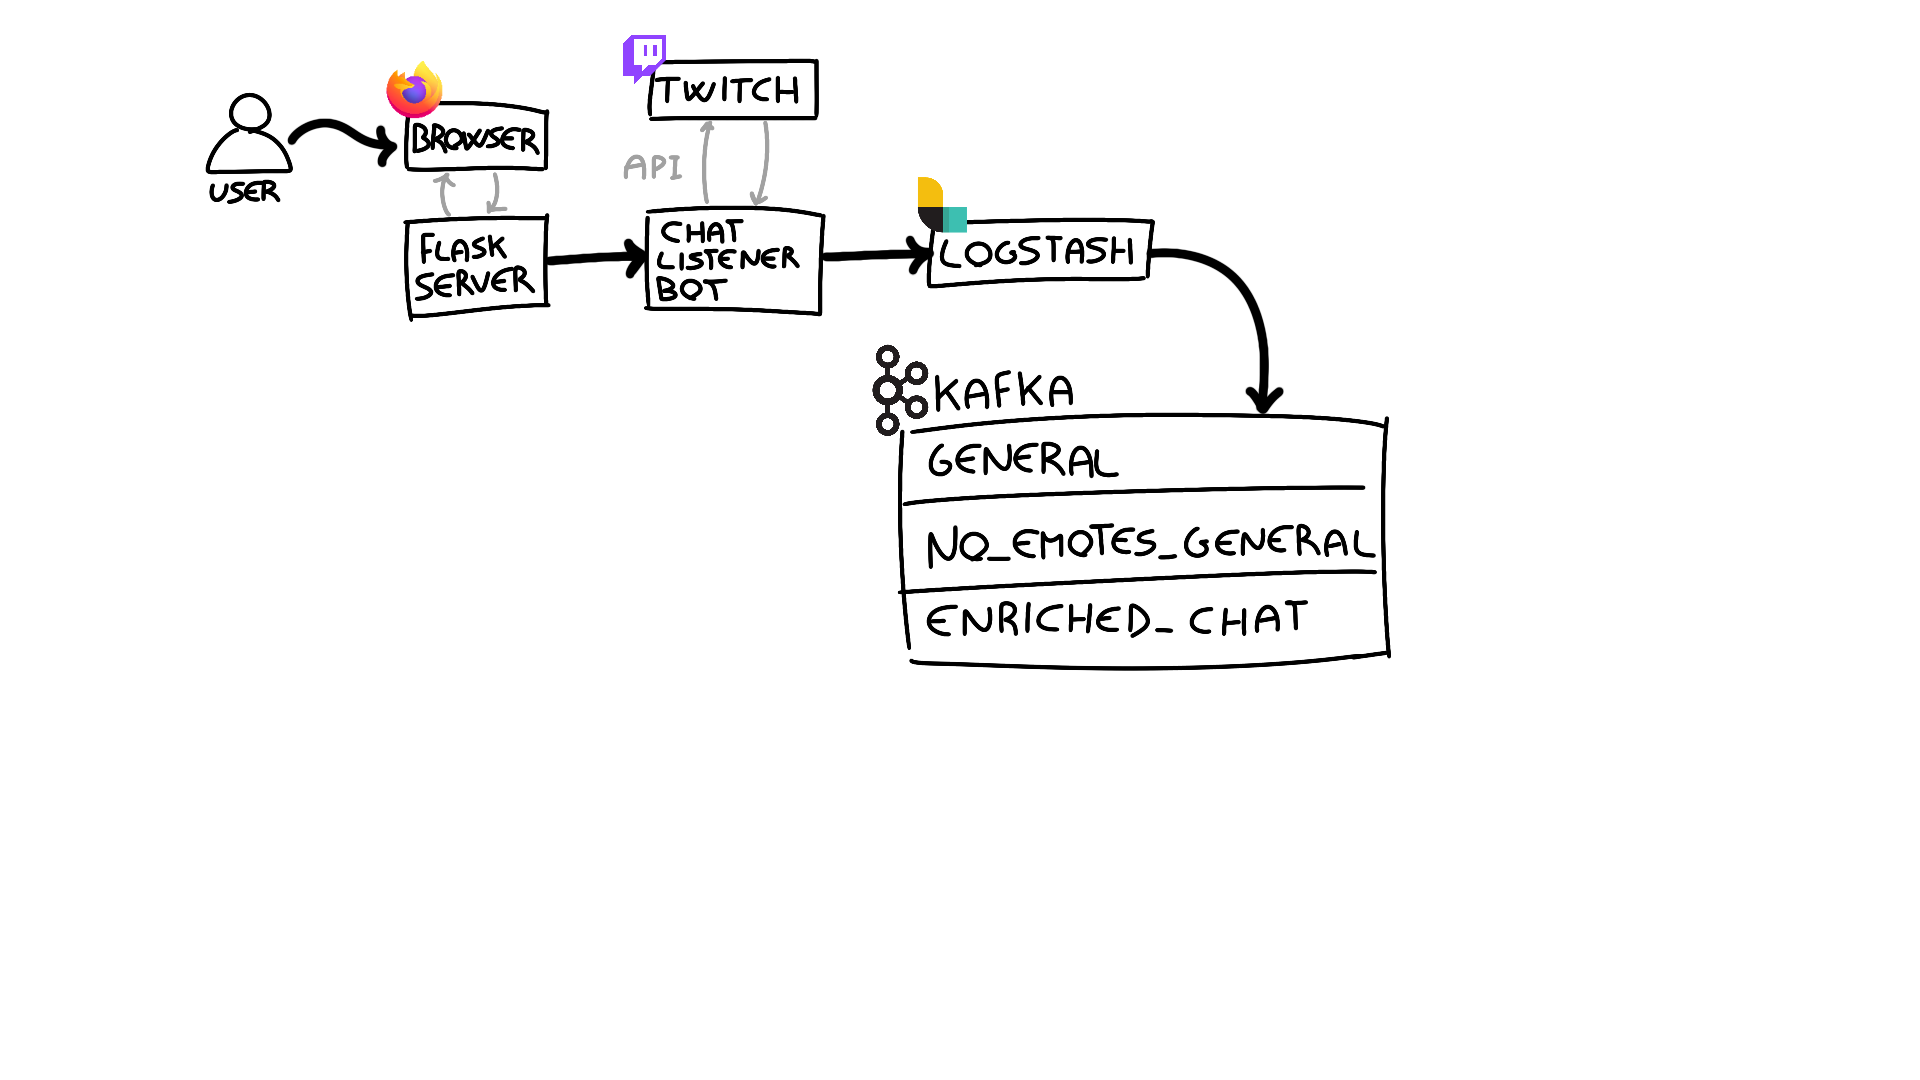 USER
BROWSER
FLASK
SERVER
TWITCH
API
CHAT
LISTENER
BOT
LOGSTASH
KAFKA
GENERAL
NO_EMOTES_GENERAL
ENRICHED_CHAT